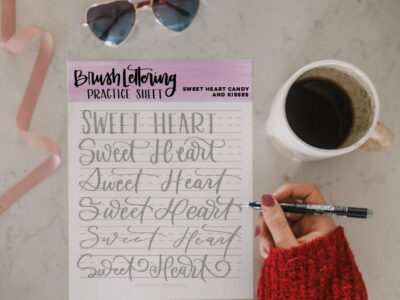 Brush Lettering
PRACTICE SHEET
SWEET HEART CANDY
AND KISSES
SWEET HEART
Sweet Heart
Sweet Heart
Sweet Heart
Sweet Heart
Sweet Heart